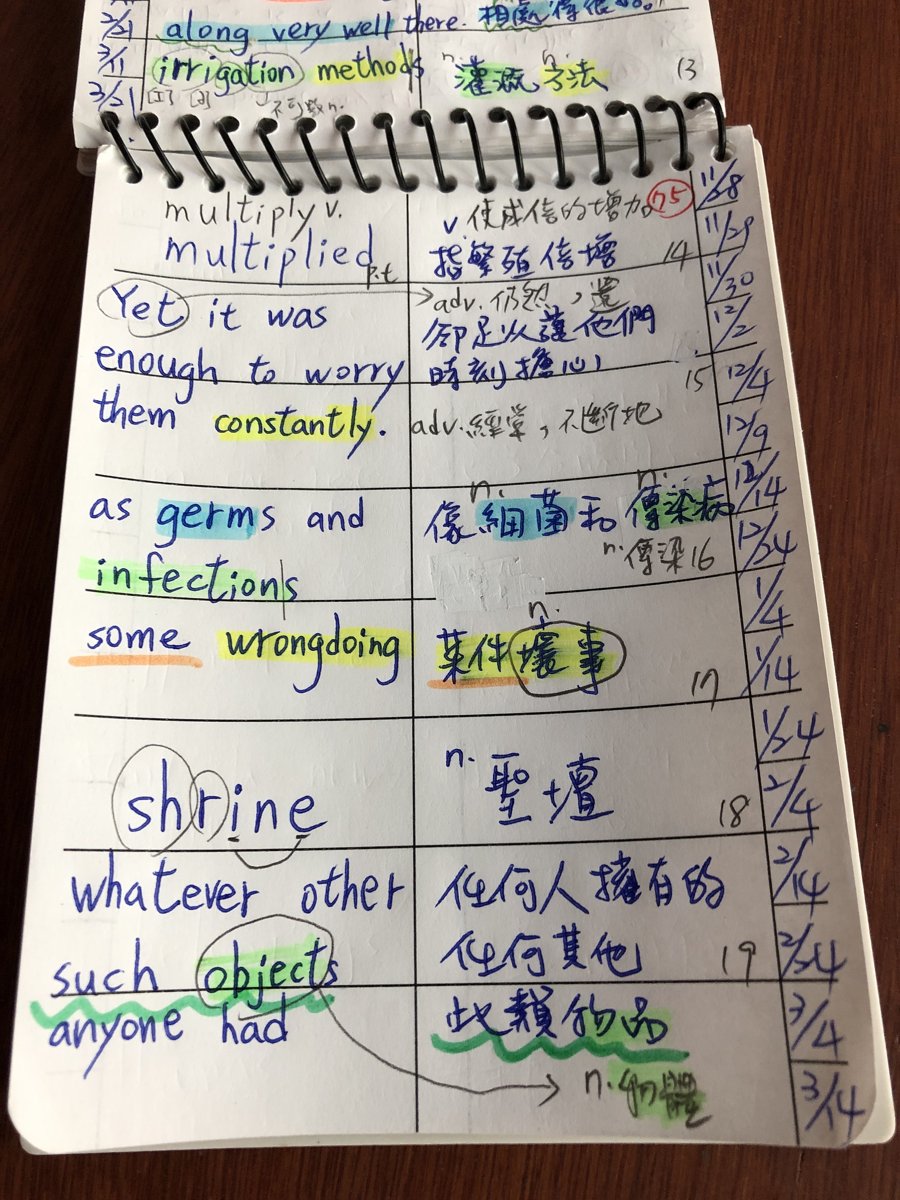 2/21
along very well there. 相處得很好。
3/11
irrigation methods
n. n.
灌溉方法 13
3/21
[I] [ə] 不可數n.
multiply v.
v 使成倍的增加 75
11/28
multiplied p.t
指繁殖倍增 14
11/29
Yet it was
adv. 仍然，還
11/30
卻足以讓他們
12/2
enough to worry
時刻擔心 15
12/4
them constantly.
adv.經常，不斷地
12/9
as germs and
n. n.
像細菌和傳染病
12/14
infections
n.傳染 16
12/24
1/4
some wrongdoing
n.
某件壞事 17
1/14
1/24
shrine
n. 聖壇 18
2/4
whatever other
任何人擁有的
2/14
such objects
任何其他 19
2/24
anyone had
此類物品
3/4
n.物體
3/14